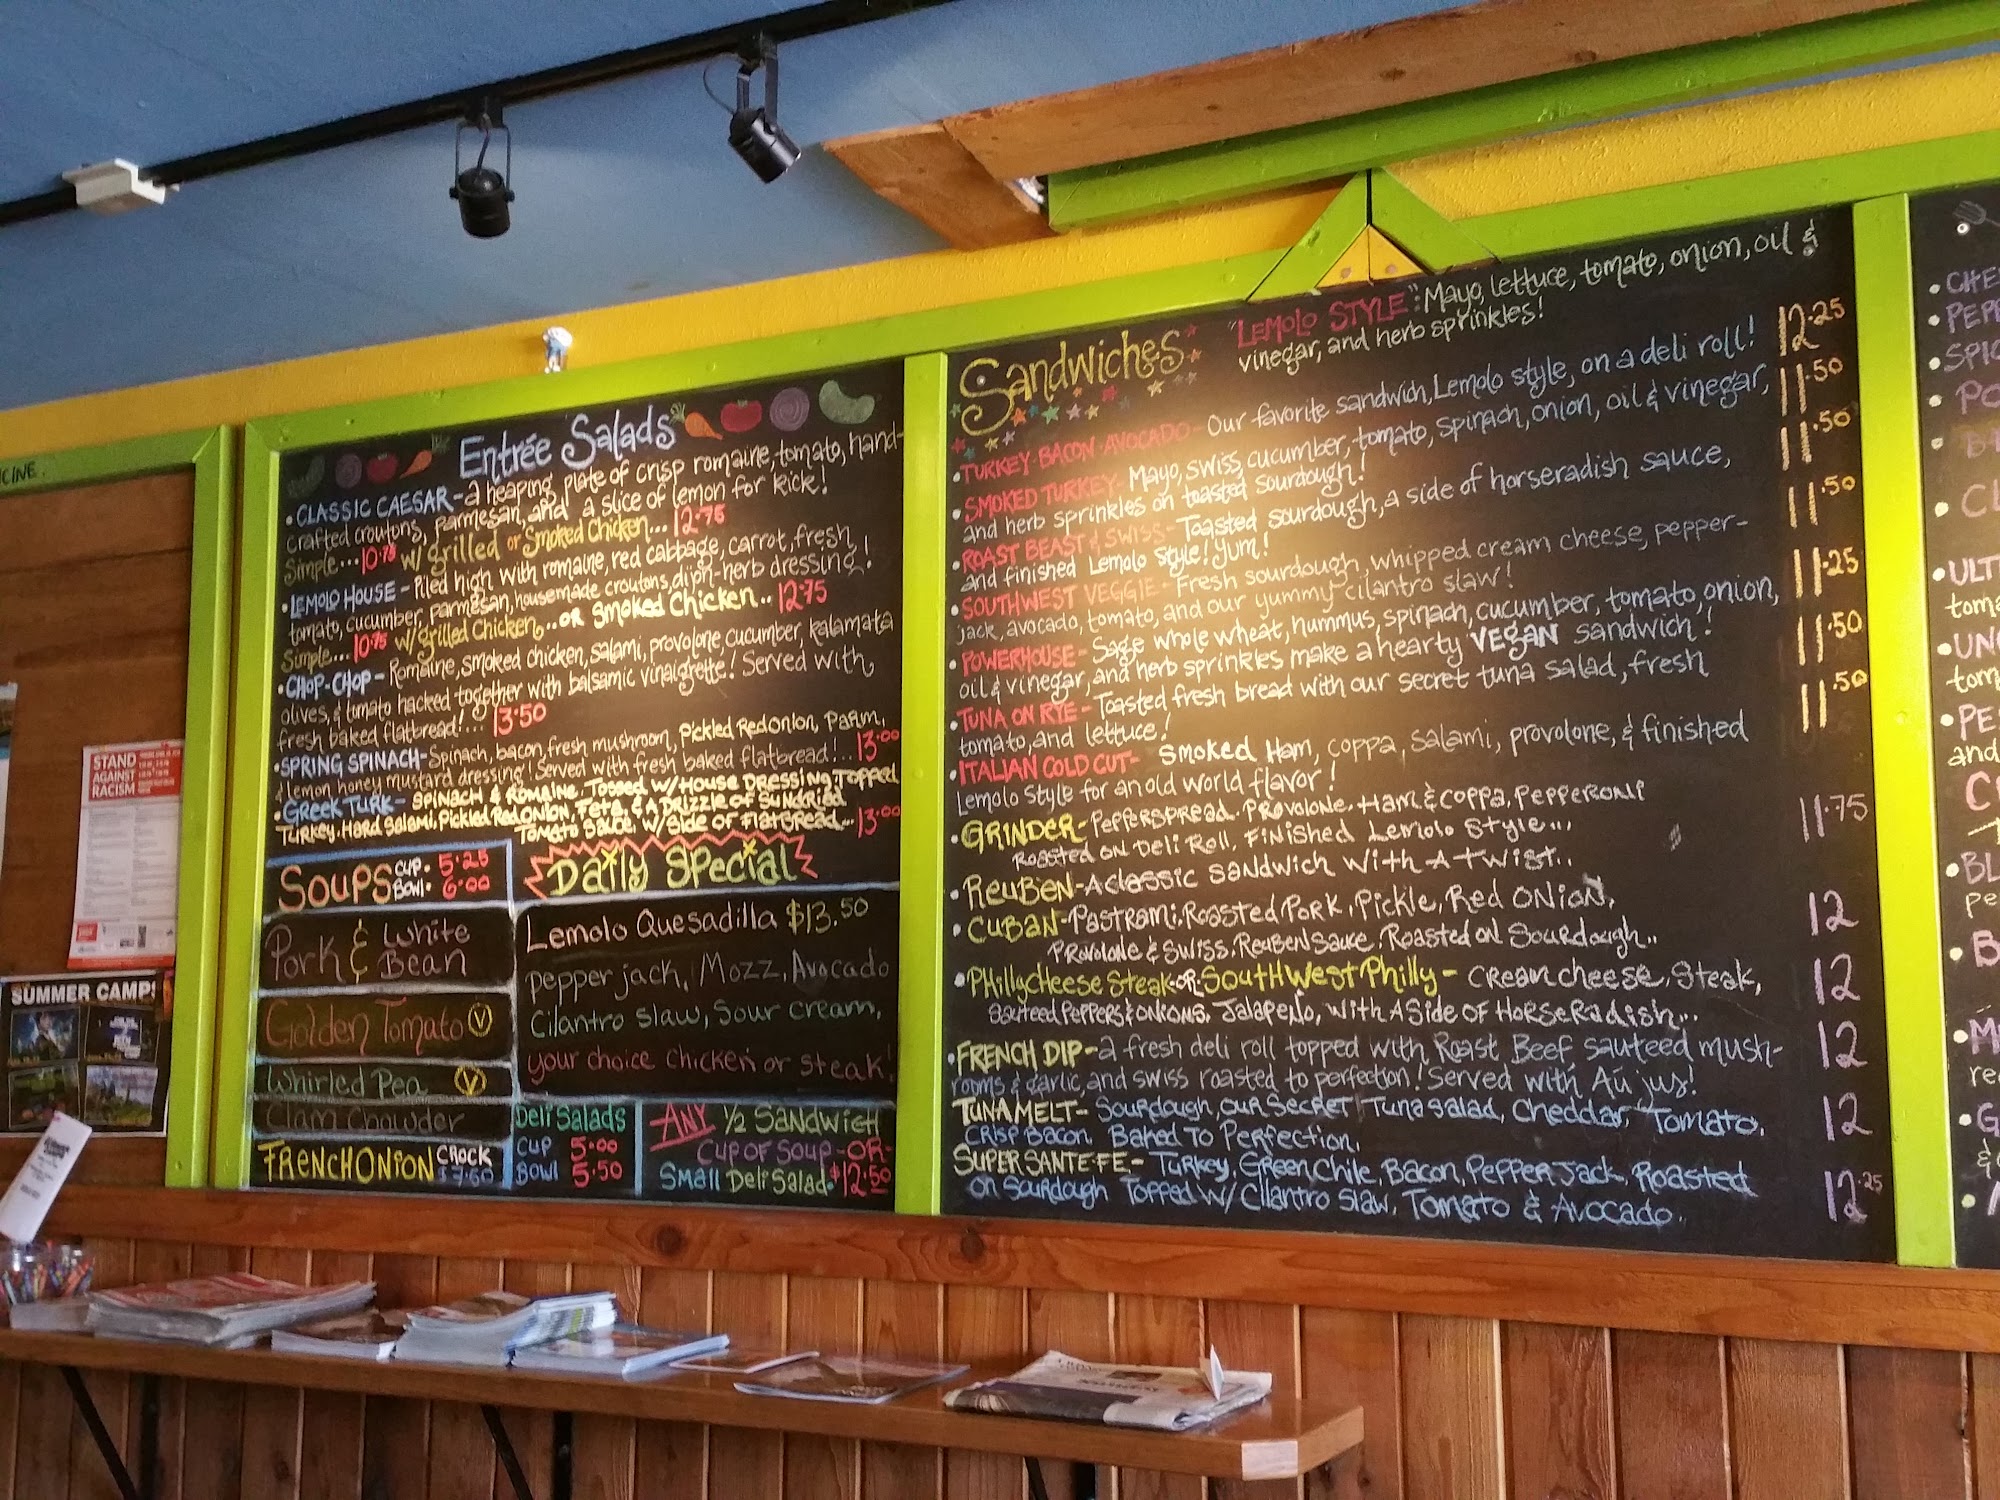 CINE.
STAND
AGAINST
RACISM
SUMMER CAMP!
Entrée Salads
• CLASSIC CAESAR - a heaping plate of crisp romaine, tomato, hand-
crafted croutons, parmesan, and a slice of lemon for kick!
Simple... 10.75 w/ grilled or Smoked Chicken... 12.75
• LEMOLO HOUSE - Piled high with romaine, red cabbage, carrot, fresh
tomato, cucumber, parmesan, housemade croutons, dijon-herb dressing!
Simple... 10.75 w/ grilled Chicken... OR Smoked Chicken.. 12.75
• CHOP-CHOP - Romaine, smoked chicken, salami, provolone, cucumber, kalamata
olives, & tomato hacked together with balsamic vinaigrette! Served with
fresh baked flatbread!... 13.50
• SPRING SPINACH - Spinach, bacon, fresh mushroom, Pickled Red Onion, Parm,
& lemon honey mustard dressing! Served with fresh baked flatbread!.. 13.00
• Greek Turk - Spinach & Romaine. Tossed w/ House Dressing Topped
Turkey, Hard Salami, Pickled Red Onion, Feta, & A Drizzle of Sundried
Tomato Sauce, w/ Side of Flatbread... 13.00
Soups CUP. 5.25
BOWL. 6.00
Pork & White
Bean
Golden Tomato V
Whirled Pea V
Clam Chowder
French Onion CROCK
$7.50
Daily Special
Lemolo Quesadilla $13.50
pepper jack, Mozz, Avocado
Cilantro slaw, Sour cream,
your choice chicken or steak!
Deli Salads
CUP 5.00
BOWL 5.50
ANY 1/2 SANDWICH
CUP OF SOUP -OR-
SMALL Deli Salad. $12.50
Sandwiches
"LEMOLO STYLE": Mayo, lettuce, tomato, onion, oil &
vinegar, and herb sprinkles!
• TURKEY-BACON-AVOCADO - Our favorite sandwich, Lemolo style, on a deli roll! 12.25
• SMOKED TURKEY - Mayo, swiss, cucumber, tomato, spinach, onion, oil & vinegar, 11.50
and herb sprinkles on toasted sourdough!
• ROAST BEAST & SWISS - Toasted sourdough, a side of horseradish sauce, 11.50
and finished Lemolo style! Yum!
• SOUTHWEST VEGGIE - Fresh sourdough, whipped cream cheese, pepper- 11.50
jack, avocado, tomato, and our yummy cilantro slaw!
• POWERHOUSE - Sage whole wheat, hummus, spinach, cucumber, tomato, onion, 11.25
oil & vinegar, and herb sprinkles make a hearty VEGAN sandwich!
• TUNA ON RYE - Toasted fresh bread with our secret tuna salad, fresh 11.50
tomato, and lettuce!
• ITALIAN COLD CUT - Smoked Ham, coppa, salami, provolone, & finished 11.50
Lemolo style for an old world flavor!
• GRINDER - Pepperspread. Provolone. Ham & Coppa, Pepperoni 11.75
Roasted on Deli Roll, Finished Lemolo Style...
• REUBEN - A classic Sandwich With-A-Twist..
• CUBAN - Pastrami, Roasted Pork, Pickle, Red Onion, 12
Provolone & Swiss, Reuben Sauce. Roasted on Sourdough..
• Philly Cheese Steak -OR- SouthWest Philly - Cream cheese, Steak, 12
Sauteed Peppers & Onions, Jalapeño, With A Side of Horse Radish...
• FRENCH DIP - a fresh deli roll topped with Roast Beef sauteed mush- 12
rooms & garlic, and swiss roasted to perfection! Served with Au jus!
TUNA MELT - Sourdough, Our Secret Tuna Salad, Cheddar, Tomato, 12
Crisp Bacon, Baked To Perfection,
SUPER SANTE-FE - Turkey, Green Chile, Bacon, Pepper Jack, Roasted 12.25
On Sourdough Topped W/ Cilantro Slaw, Tomato & Avocado..
• CHE
• PEPP
• SPIC
• ULT
toma
• UNC
tom
• PE
and
• BL
pe